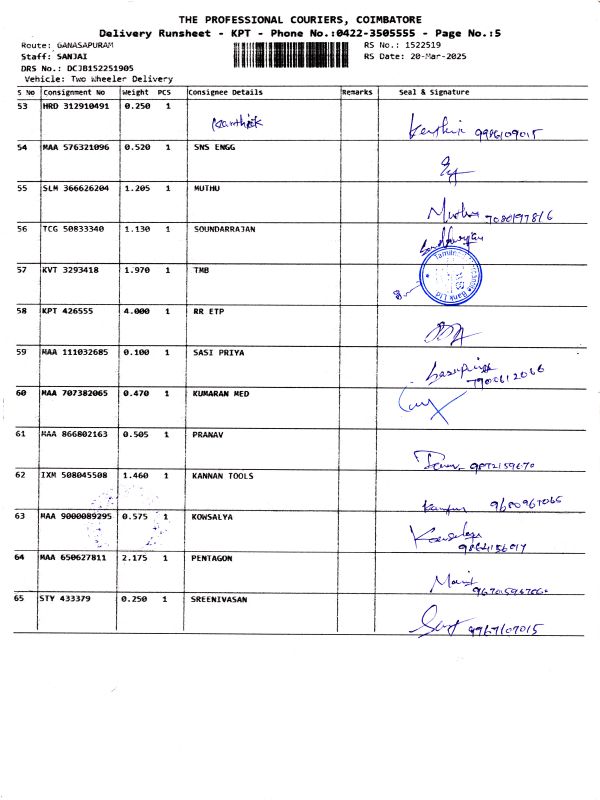 THE PROFESSIONAL COURIERS, COIMBATORE
Delivery Runsheet - KPT - Phone No.:0422-3505555 - Page No.:5
Route: GANASAPURAM RS No.: 1522519
Staff: SANJAI RS Date: 20-Mar-2025
DRS No.: DCJB152251905
Vehicle: Two Wheeler Delivery
S No Consignment No Weight PCS Consignee Details Remarks Seal & Signature
53 HRD 312910491 0.250 1
Karthick
9986109015
54 MAA 576321096 0.520 1 SNS ENGG
55 SLM 366626204 1.205 1 MUTHU
Muthu 7080197816
56 TCG 50833340 1.130 1 SOUNDARRAJAN
57 KVT 3293418 1.970 1 TMB
58 KPT 426555 4.000 1 RR ETP
59 MAA 111032685 0.100 1 SASI PRIYA
Sasipriya
7900612066
60 MAA 707382065 0.470 1 KUMARAN MED
61 MAA 866802163 0.505 1 PRANAV
9872159670
62 IXM 508045508 1.460 1 KANNAN TOOLS
9680967065
63 MAA 9000089295 0.575 1 KOWSALYA
Kowsalya
9864156017
64 MAA 650627811 2.175 1 PENTAGON
65 STY 433379 0.250 1 SREENIVASAN
9967107015